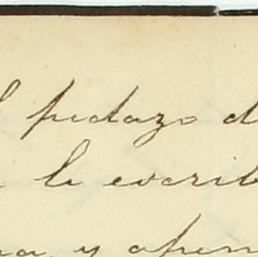 l pedazo d
le escrib
a, y apen